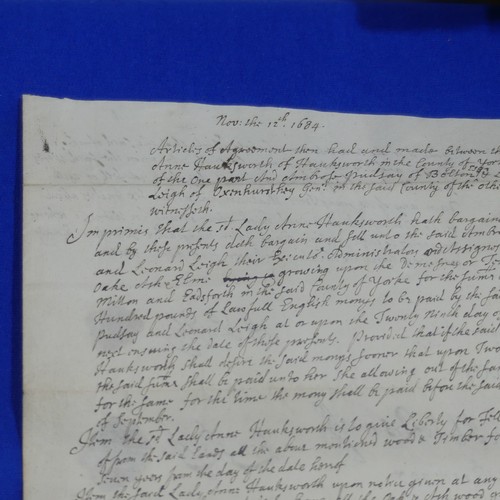 Nov: the 12th. 1684.
Articles of Agreement then had and made Between the
Anne Hauksworth of Hauksworth in the County of Yor
of the one part And Ambrose Pudsay of Bolton
Leigh of in the said County of the oth
witnesseth.
Imprimis that the sd. Lady Anne Hauksworth hath bargain
and by these presents doth bargain and sell unto the said Ambr
and Leonard Leigh their Executrs. Administrators and Assignes
Oake Ash & Elme growing upon the Demesnes or
Mitton and Eadsforth in the said County of Yorke for the summ
Hundred pounds of Lawfull English money to be paid by the said
Pudsay and Leonard Leigh at or upon the Twenty Ninth day of
next ensuing the date of these presents. Provided that if the said
Hauksworth shall desire the said money sooner that upon Two
the said summ shall be paid unto her she allowing out of the sam
for the same for the time the mony shall be paid before the said
of September.
Item the sd. Lady Anne Hauksworth is to give Liberty for
of from the said lands all the above mentioned wood & Timber fo
seven yeers from the day of the date hereof
Item the said Lady Anne Hauksworth upon notice given at any
wood